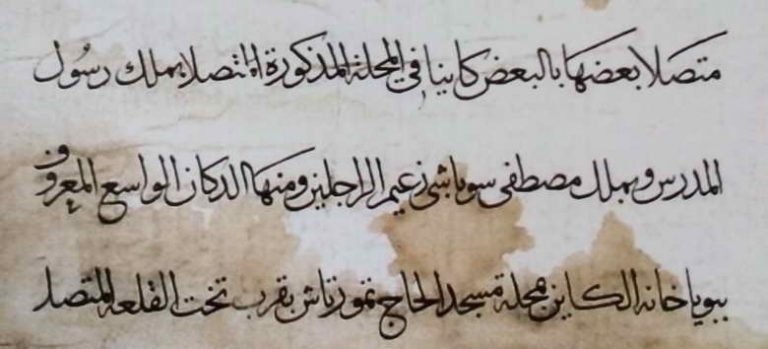 متصلا بعضها بالبعض كاينا في المحلة المذكورة المتصلا بملك رسول
المدرس وبملك مصطفى سوباشى زعيم الراجلين ومنها الدكان الواسع المعروف
ببوياخانه الكاين بمحلة مسجد الحاج تمورتاش بقرب تخت القلعه المتصل